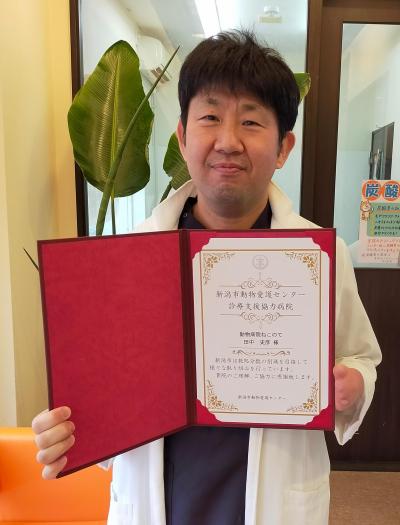 新潟市動物愛護センター
診療支援協力病院
動物病院ねこのて
田中 史彦 様
新潟市は殺処分数の削減を目指して
様々な取り組みを行っています。
貴院のご理解、ご協力に感謝致します。
新潟市動物愛護センター
炭酸